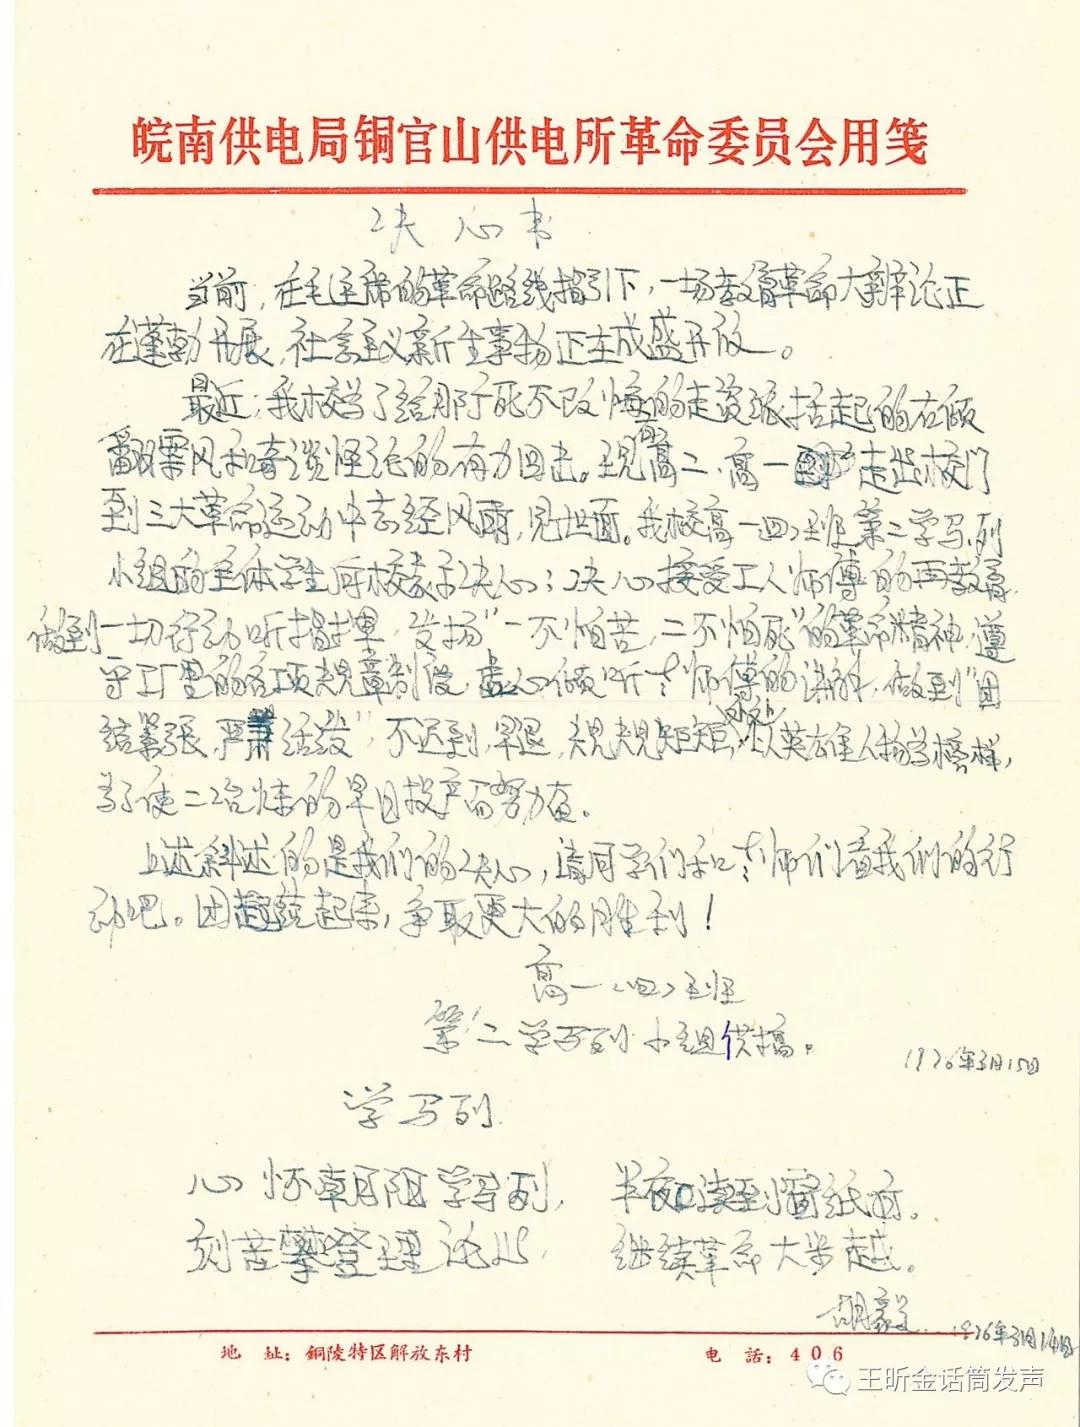 皖南供电局铜官山供电所革命委员会用笺
决心书
当前,在毛主席的革命路线指引下,一场教育革命大辩论正
在蓬勃开展,社会主义新生事物正在成盛开放。
最近,我校为了给那阶死不改悔的走资派括起的右倾
翻案风和奇谈怪论的有力回击。现高二、高一走出校门
到三大革命运动中去经风雨,见世面。我校高一四班第二学马列
小组的全体学生向校表示决心:决心接受工人师傅的再教育,
做到一切行动听指挥,发扬"一不怕苦,二不怕死"的革命精神,遵
守工厂里的各项规章制度,虚心倾听老师傅的讲解,做到"团
结紧张,严肃活发",不迟到,早退,规规矩矩,处处以英雄人物为榜样,
为了使二冶炼的早日投产而努力奋。
上述叙述的是我们的决心,请同学们和老师们看我们的行
动吧。团结起来,争取更大的胜利!
高一<四>班
第二学马列小组供搞。
1976年3月15日
学马列
心怀朝阳学马列, 半夜读到窗纸亮。
刻苦攀登理论山, 继续革命大步越。
胡毅 1976年3月14日
地 址:銅陵特区解放东村 电 話:406
王昕金话筒发声